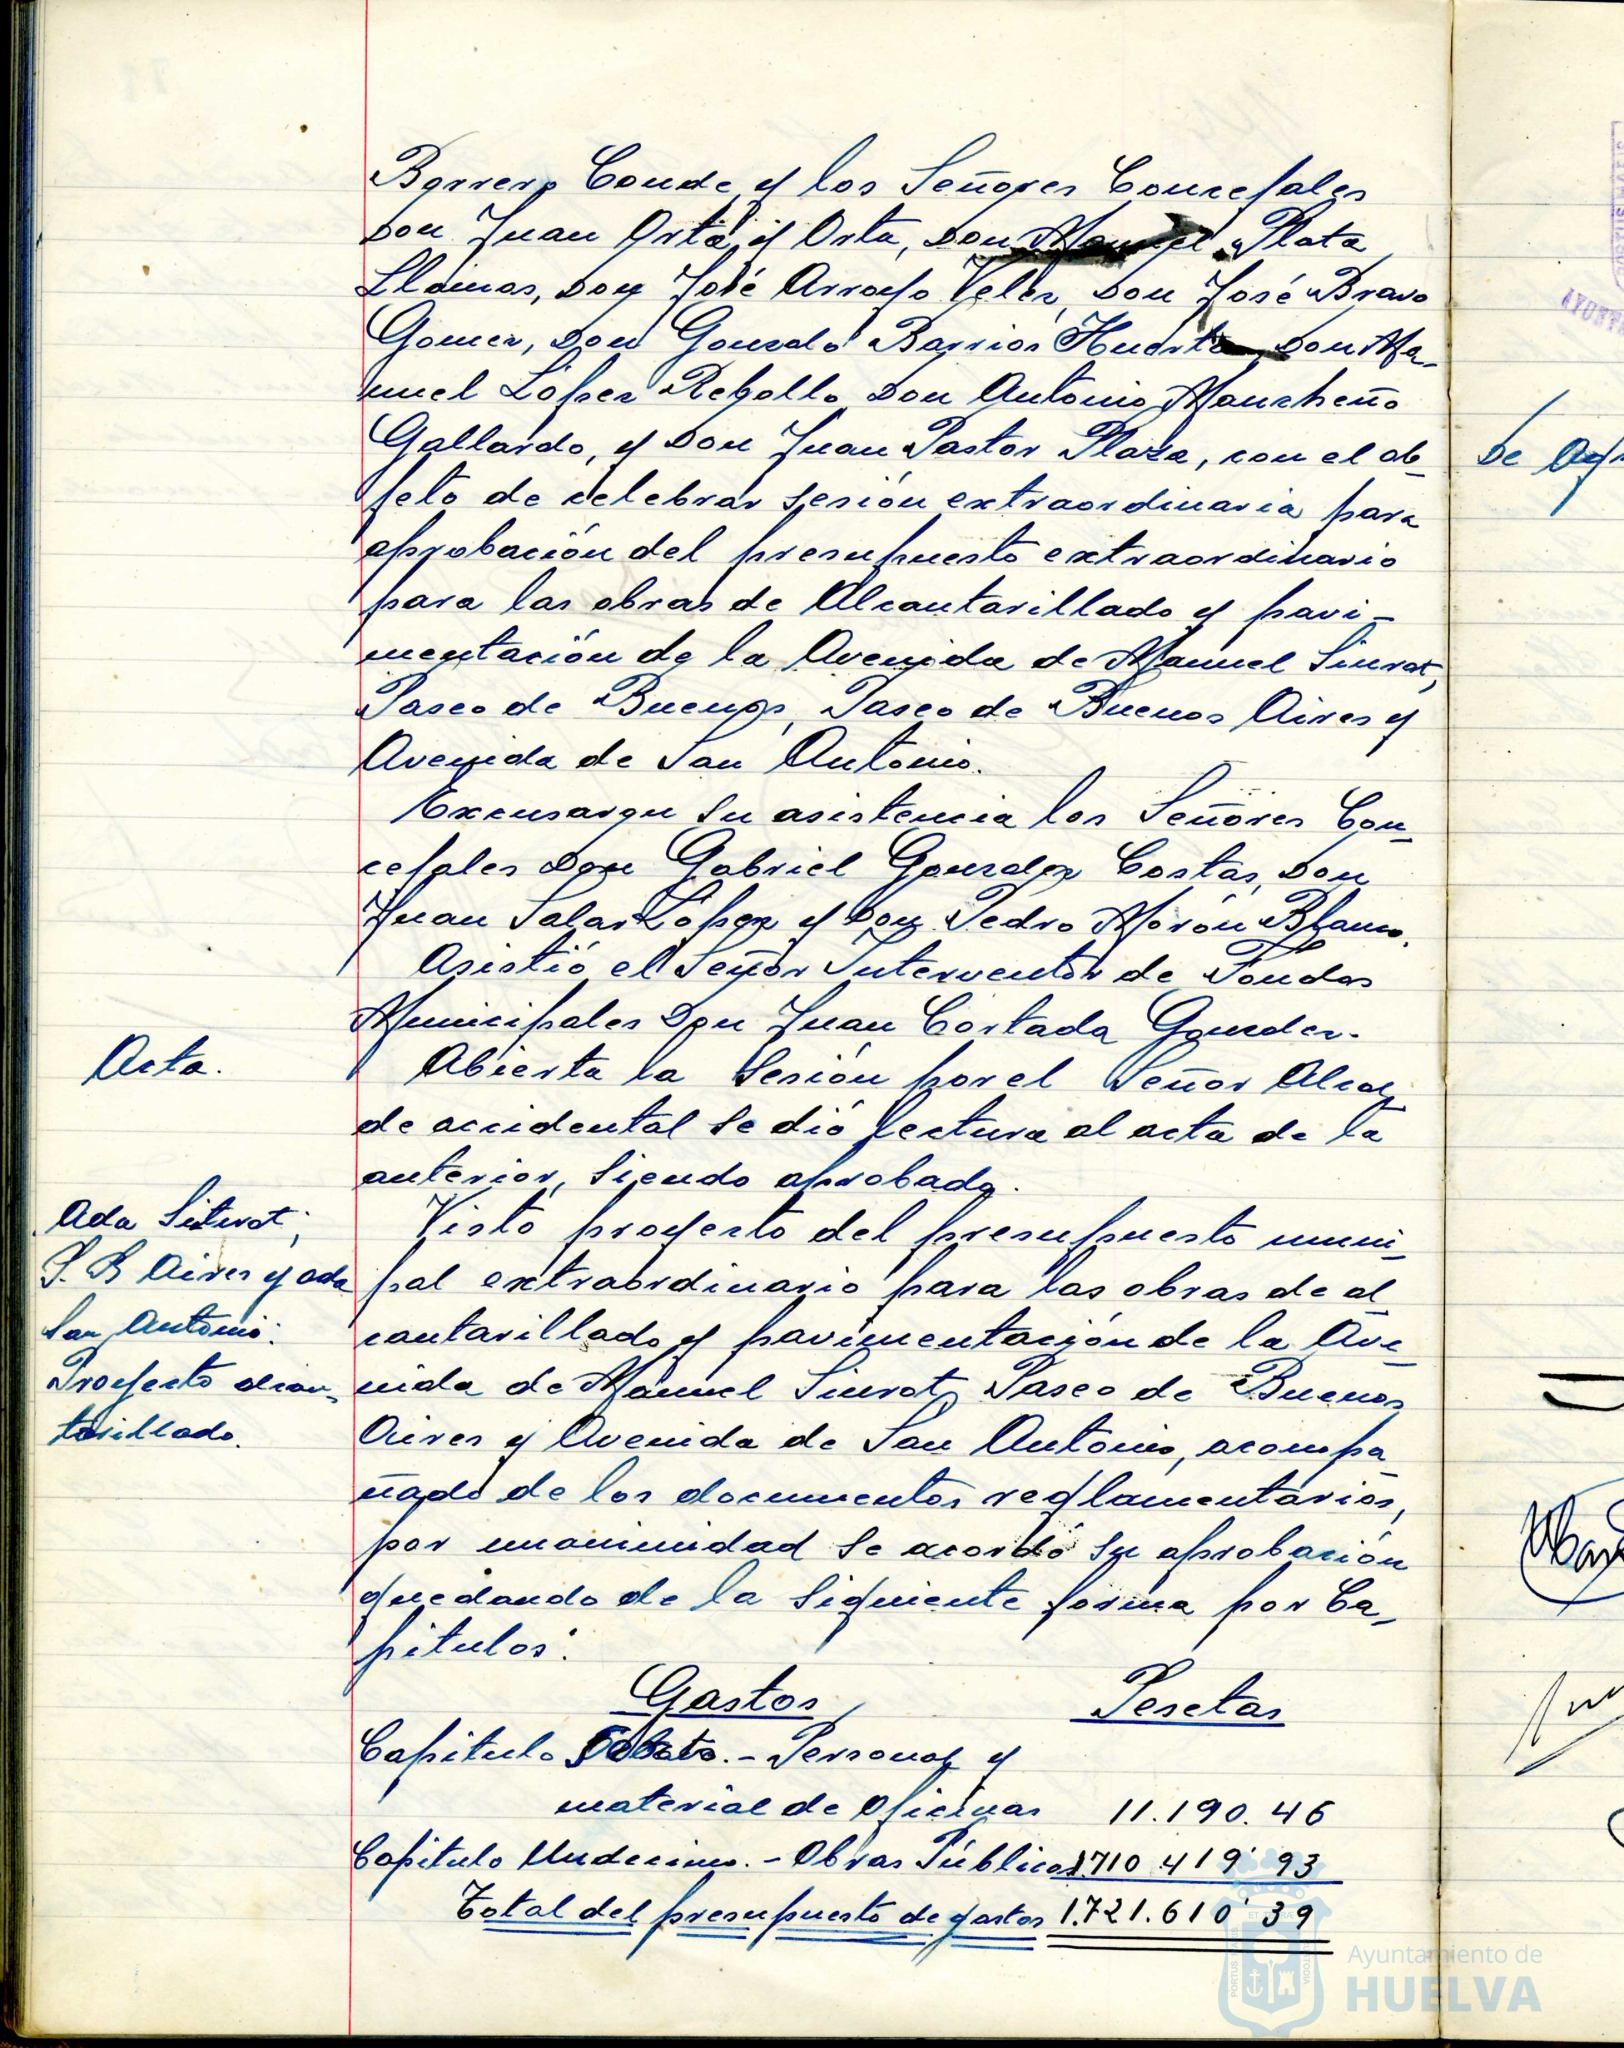 Borrero Conde y los Señores Concejales
Don Juan Orta y Orta, Don Manuel Plata
Llamas, Don José Arroyo Velez, Don José Bravo
Gomez, Don Gonzalo Barrios Huerta Don Ma-
nuel López Rebollo Don Antonio Mancheño
Gallardo, y Don Juan Pastor Plaza, con el ob-
jeto de celebrar sesión extraordinaria para
aprobación del presupuesto extraordinario
para las obras de Alcantarillado y pavi-
mentación de la Avenida de Manuel Siurot,
Paseo de Buenos, Paseo de Buenos Aires y
Avenida de San Antonio.
Excusaron su asistencia los Señores Con-
cejales Don Gabriel Gonzalez Costas, Don
Juan Salas López y Don Pedro Morón Blanco.
Asistió el Señor Interventor de Fondos
Municipales Don Juan Cortada Gonzalez.
Acta.
Abierta la sesión por el Señor Alcal
de accidental se dió lectura al acta de la
anterior, siendo aprobada.
Ada Siurot;
P. B Aires y ada
San Antonio:
Proyecto alcan-
tarillado.
Visto proyecto del presupuesto muni-
pal extraordinario para las obras de al
cantarillado y pavimentación de la Ave
nida de Manuel Siurot, Paseo de Buenos
Aires y Avenida de San Antonio, acompa
ñado de los documentos reglamentarios,
por unanimidad se acordó su aprobación
quedando de la siguiente forma por Ca-
pitulos:
Gastos Pesetas
Capitulo .- Personal y
material de oficinas 11.190.46
Capitulo Undecimo.- Obras Públicas 1.710.419'93
Total del presupuesto de gastos 1.721.610'39
Ayuntamiento de
HUELVA